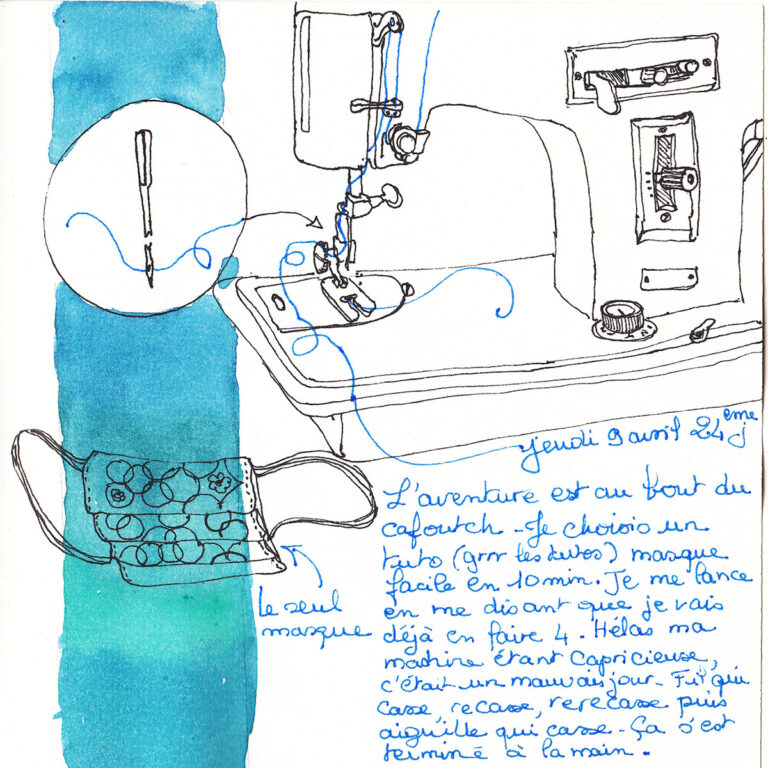 jeudi 9 avril 24ème j
L'aventure est au bout du
cafoutch - Je choisis un
tuto (grrr les tutos) masque
facile en 10 min. Je me lance
en me disant que je vais
déjà en faire 4. Hélas ma
machine étant capricieuse,
c'était un mauvais jour. Fil qui
casse, recasse, rerecasse puis
aiguille qui casse. Ça s'est
terminé à la main.
le seul
masque